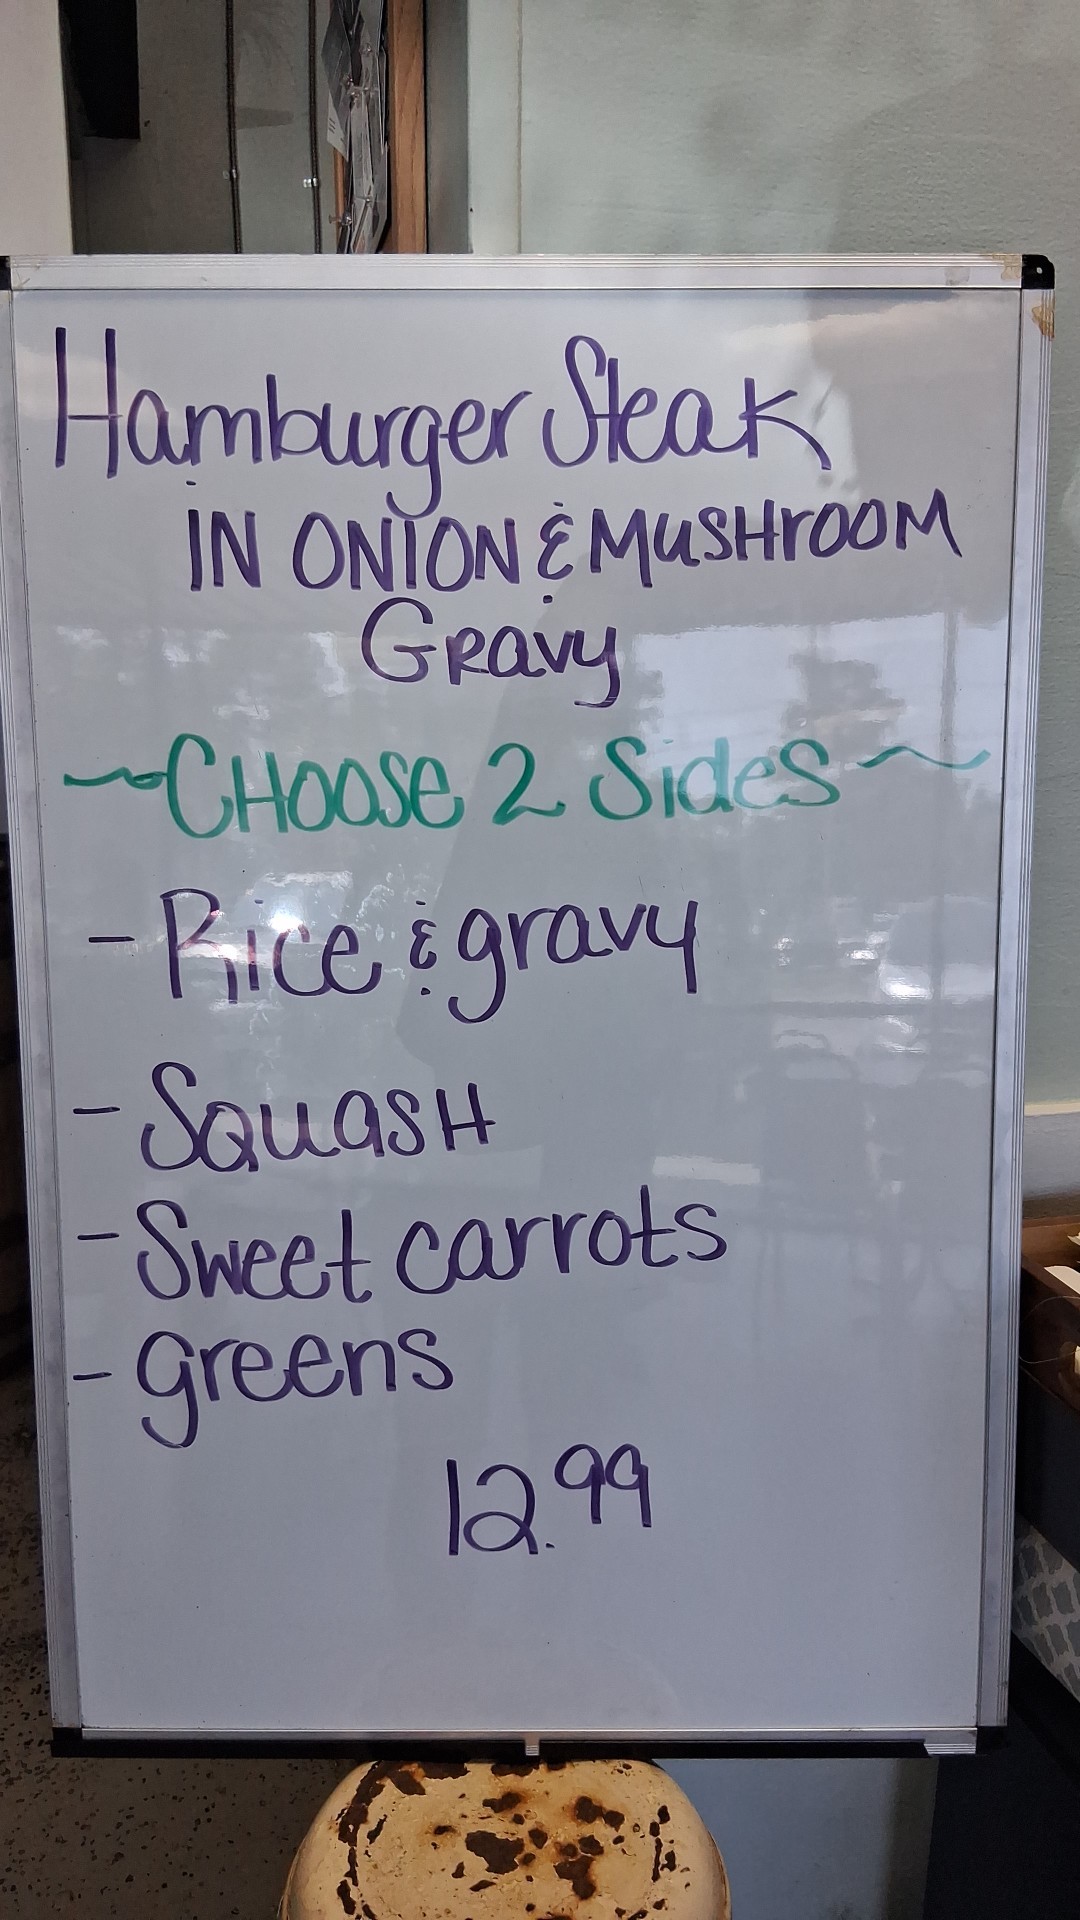 Hamburger Steak
IN ONION & MUSHROOM
GRavy
~CHOOSE 2 Sides~
- Rice & gravy
- SQUASH
- Sweet carrots
- greens
12.99